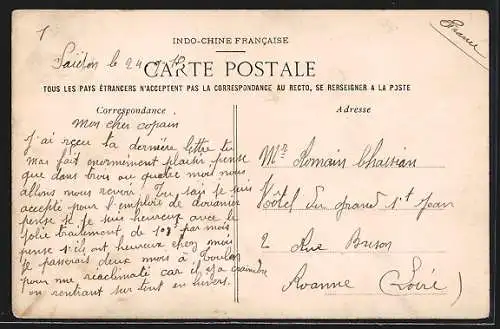 1
France
INDO-CHINE FRANÇAISE
Saïgon le 24
CARTE POSTALE
TOUS LES PAYS ÉTRANGERS N'ACCEPTENT PAS LA CORRESPONDANCE AU RECTO, SE RENSEIGNER A LA POSTE
Correspondance
Mon cher copain
J'ai reçu ta dernière lettre tu
mas fait enormément plaisir pense
que dans trois ou quatre mois nous
allons nous revoir. Tu sais je suis
accepté pour l'emploie de douanier
pense si je suis heureux avec le
jolie traitement de par mois
pense s'ils ont heureux chez moi
Je passerais deux mois à Toulon
pour me réaclimaté car il y a craindre
en rentrant sur tout en hivers.
Adresse
Mr Romain Chassian
Hôtel du grand St Jean
2 Rue Brison
Roanne (Loire)